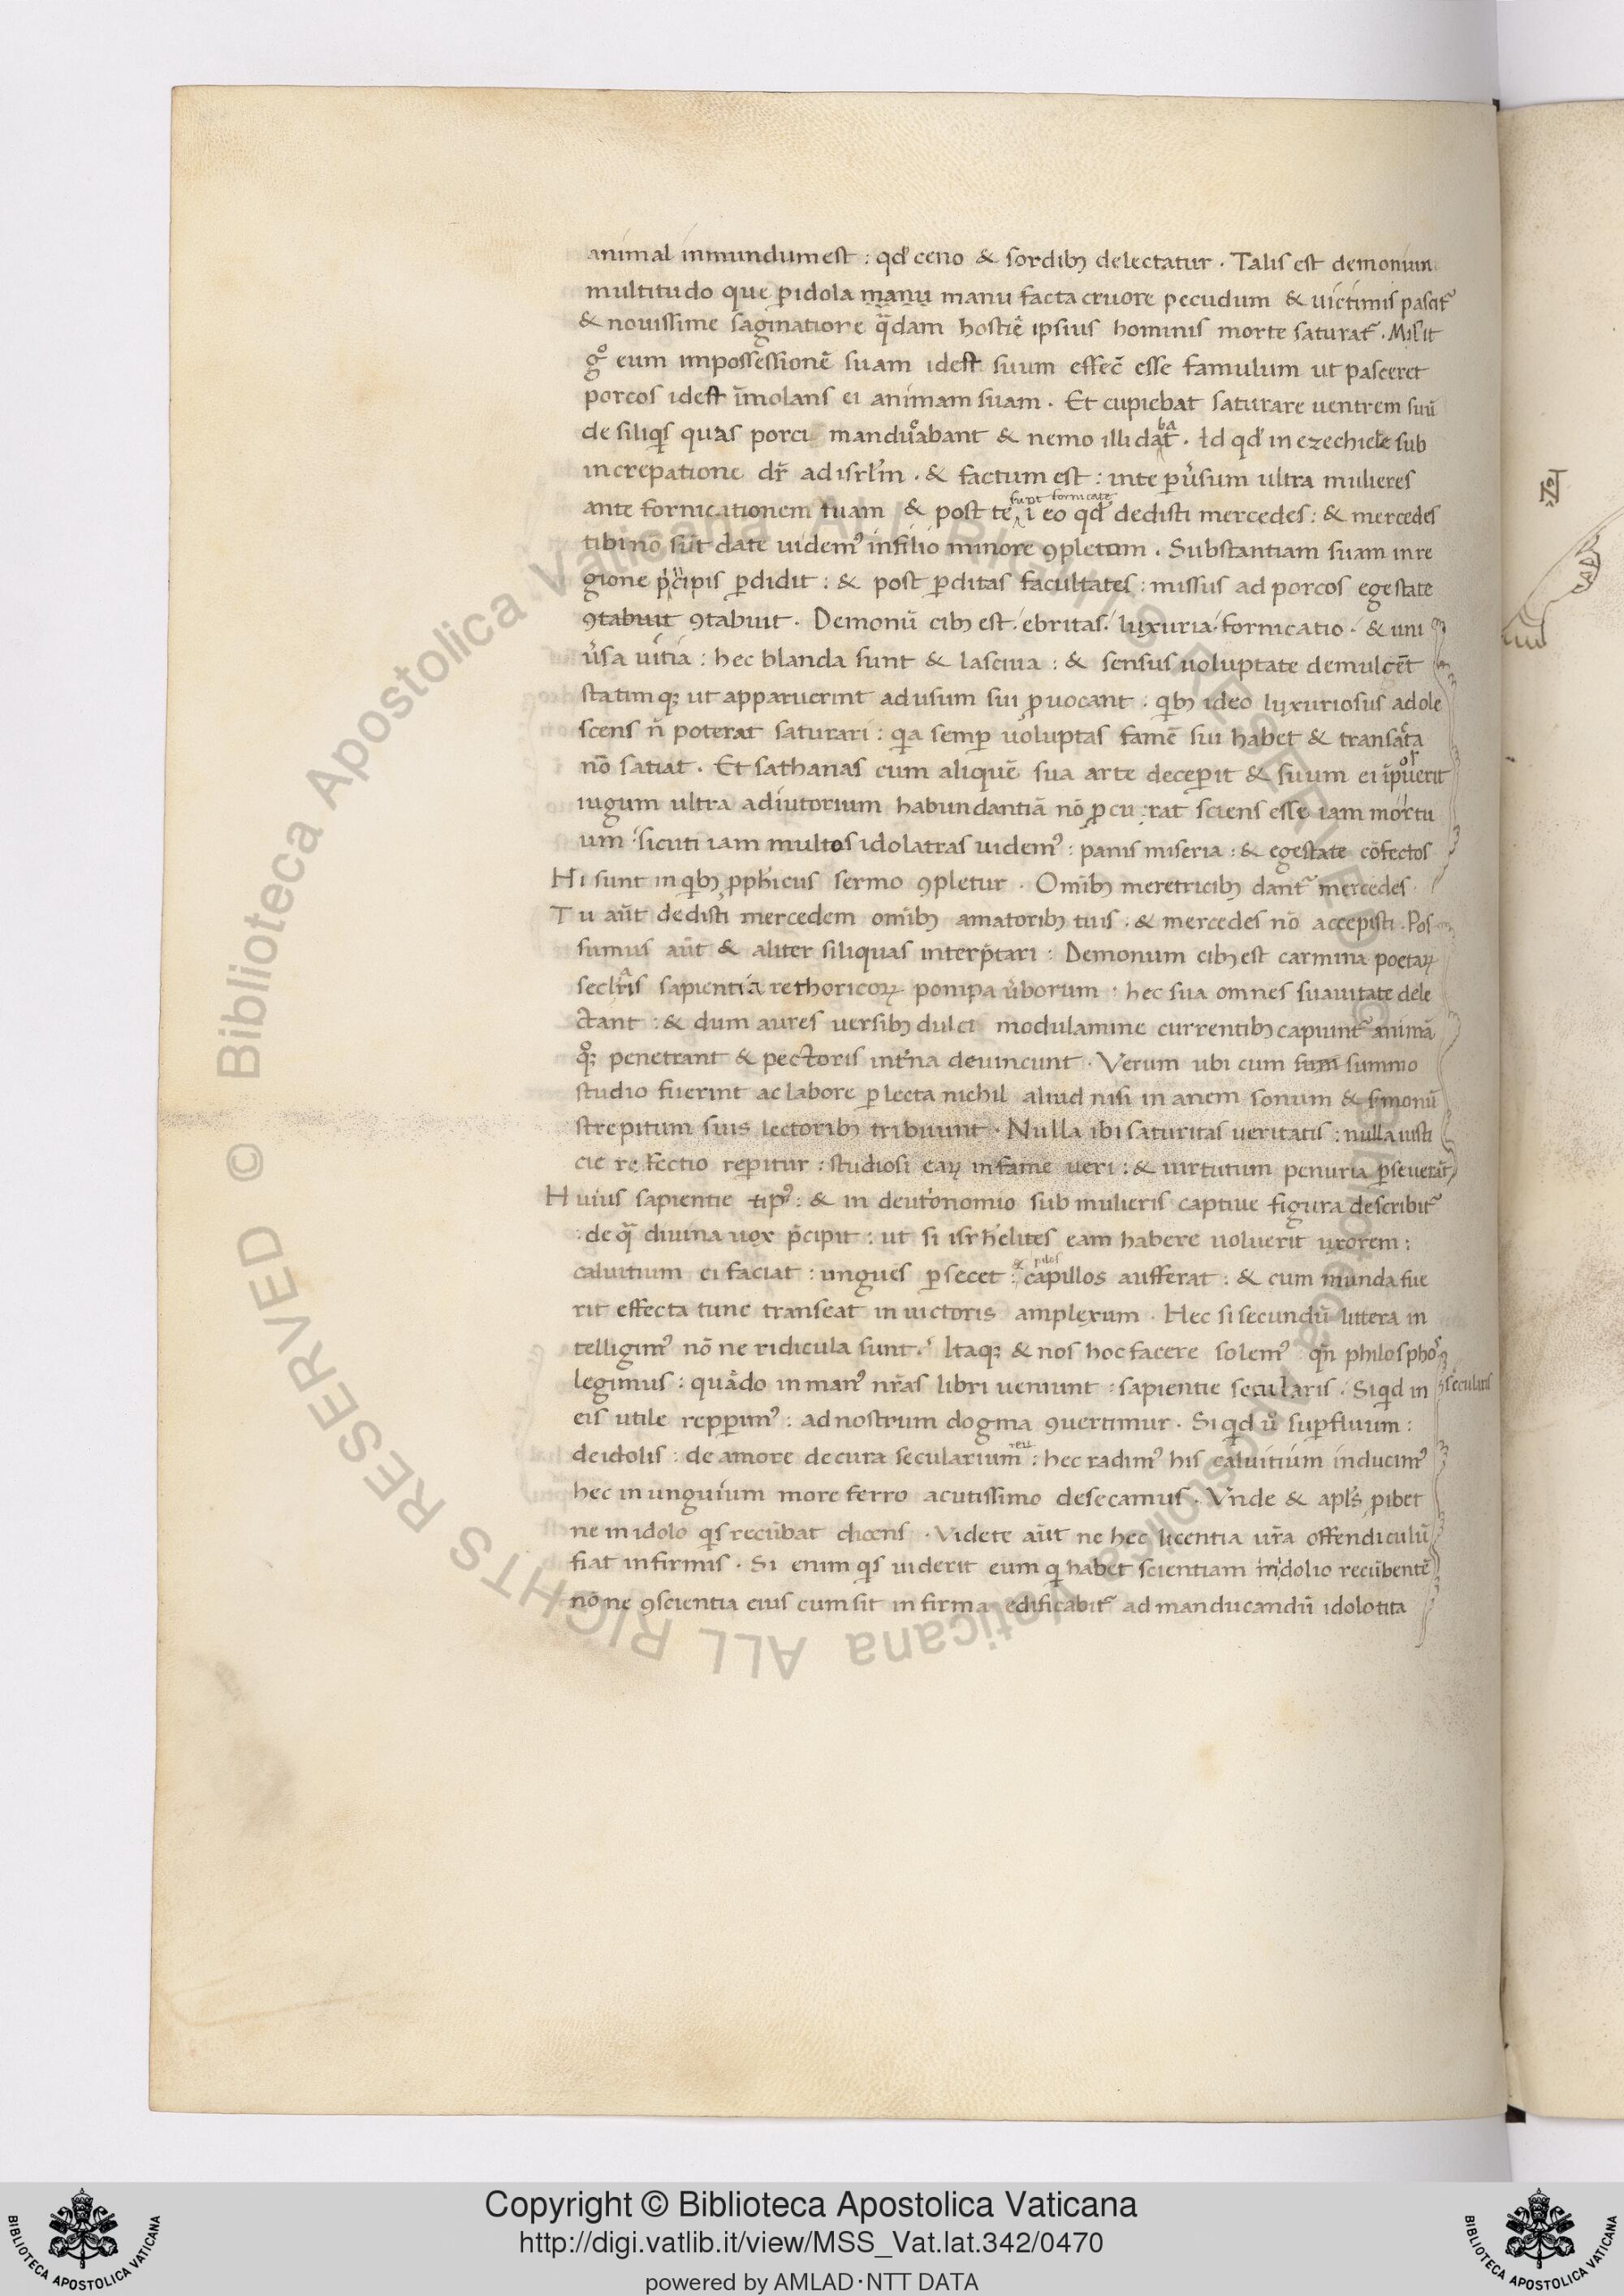 animal inmundum est : qđ ceno & sordibꝫ delectatur . Talis est demonium
multitudo que ꝑ idola manu manu facta cruore pecudum & uictimis pascit᷑
& nouissime saginatione q̃dam hostie ipsius hominis morte saturat᷑ . Misit
gͦ eum inpossessionē suam idest suum effec̄ esse famulum ut pasceret
porcos idest īmolans ei animam suam . Et cupiebat saturare uentrem suū
de siliqͥs quas porci manducabant & nemo illi dabat . Id qđ in ezechiele sub
increpatione dr̄ ad isrl̄m . & factum est : in te ꝑuͥsum ultra mulieres
ante fornicationem tuam & post te sunt fornicate ī eo qđ dedisti mercedes : & mercedes
tibi nō sūt date uidemꝰ in filio minore ꝯpletum . Substantiam suam in re
gione pͥncipis ꝑdidit : & post ꝑditas facultates : missus ad porcos egestate
ꝯtabuit ꝯtabuit . Demonū cibꝫ est . ebritas . luxuria . fornicatio . & uni
uͥsa uitia : hec blanda sunt & lasciua : & sensus uoluptate demulcēt
statimqꝫ ut apparuerint ad usum sui ꝓuocant . qͥbꝫ ideo luxuriosus adole
scens n̄ poterat saturari : qͥa semꝑ uoluptas famē sui habet & transacta
nō satiat . Et sathanas cum aliquē sua arte deceperit & suum ei īposuerit
iugum ultra adiutorium habundantiā nō ꝓcurat sciens esse iam mortu
um . sicuti iam multos idolatras uidemꝰ : panis miseria : & egestate cōfectos
Hi sunt in qͥbꝫ ꝓph̄icus sermo ꝯpletur . Omībꝫ meretricibꝫ dant᷑ mercedes .
Tu aūt dedisti mercedem omībꝫ amatoribꝫ tuis . & mercedes nō accepisti . Pos
sumus aūt & aliter siliquas interp̄tari : Demonum cibꝫ est carmina poetaꝝ
seclaris sapientia rethoricoꝝ pompa uͥborum : hec sua omnes suauitate dele
ctant : & dum aures uersibꝫ dulci modulamine currentibꝫ capiunt᷑ animā
qͦꝫ penetrant & pectoris intͥna deuincunt . Verum ubi cum sum summo
studio fuerint ac labore ꝑlecta nichil aliud nisi inanem sonum & sͥmonū
strepitum suis lectoribꝫ tribuunt . Nulla ibi saturitas ueritatis : nulla iusti
cie refectio reꝑitur : studiosi eaꝝ in fame ueri : & uirtutum penuria ꝑseuerāt
Huius sapientie tipꝰ : & in deutͦonomio sub mulieris captiue figura describit᷑
. de qͣ diuina uox p̄cipit : ut si isrh̄elites eam habere uoluerit uxorem :
caluitium ei faciat : ungues p̄secet : & pilos capillos aufferat : & cum munda fue
rit effecta tunc transeat in uictoris amplexum . Hec si secundū littera in
telligimꝰ nō ne ridicula sunt . Itaqꝫ & nos hoc facere solemꝰ qn̄ philosphoꝝ
legimus : quādo in manꝰ nr̄as libri ueniunt : sapientie secularis . Siqͥd in
secularis
eis utile reꝑꝑimꝰ : ad nostrum dogma ꝯuertimur . Siqͥd uͦ suꝑfluum :
de idolis : de amore de cura secularium reū : hec radimꝰ his caluitium inducimꝰ
hec in unguium more ferro acutissimo desecamus . Vnde & apl̄s ꝓibet
ne in idolo qͥs recūbat dicens . Videte aūt ne hec licentia ur̄a offendiculū
fiat infirmis . Si enim qͥs uiderit eum qͥ habet scientiam in idolio recūbentē
nō ne ꝯscientia eius cum sit infirma edificabit᷑ ad manducandū idolotita
Biblioteca Apostolica Vaticana ALL RIGHTS RESERVED ©
Copyright © Biblioteca Apostolica Vaticana
http://digi.vatlib.it/view/MSS_Vat.lat.342/0470
powered by AMLAD·NTT DATA
BIBLIOTECA APOSTOLICA VATICANA
BIBLIOTECA APOSTOLICA VATICANA